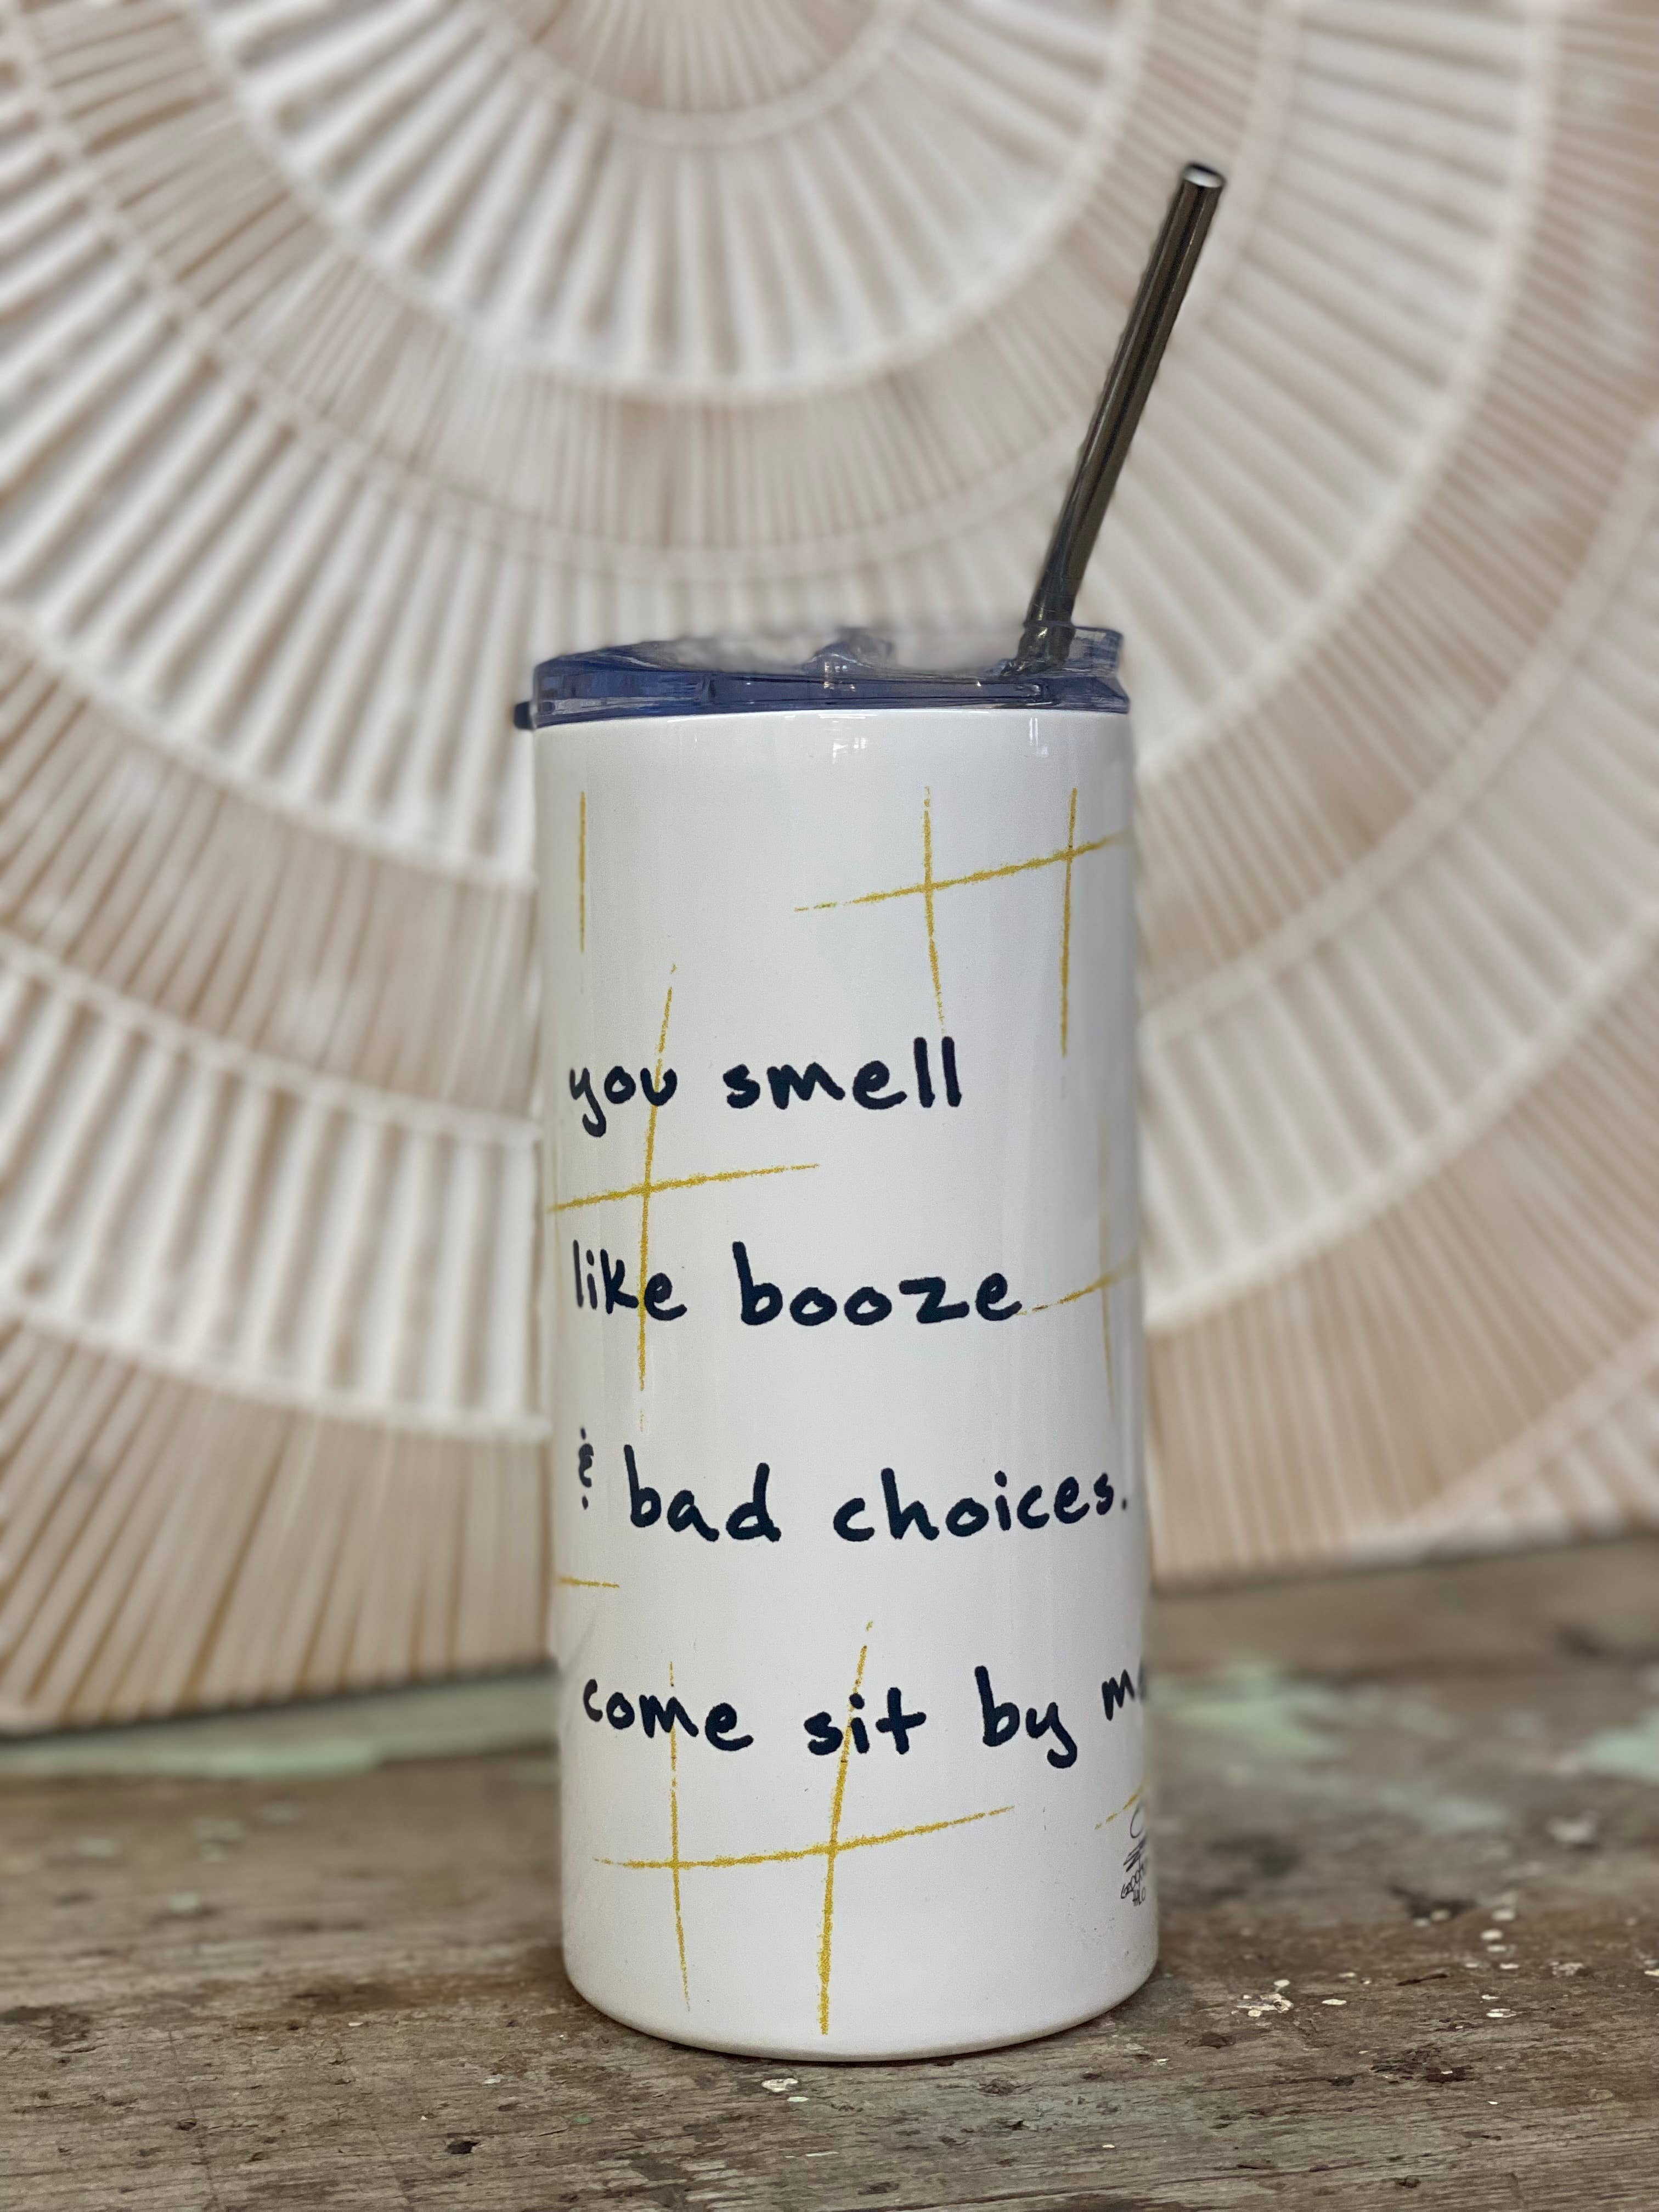 you smell
like booze
& bad choices.
come sit by me